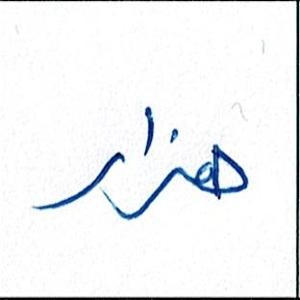 هزار